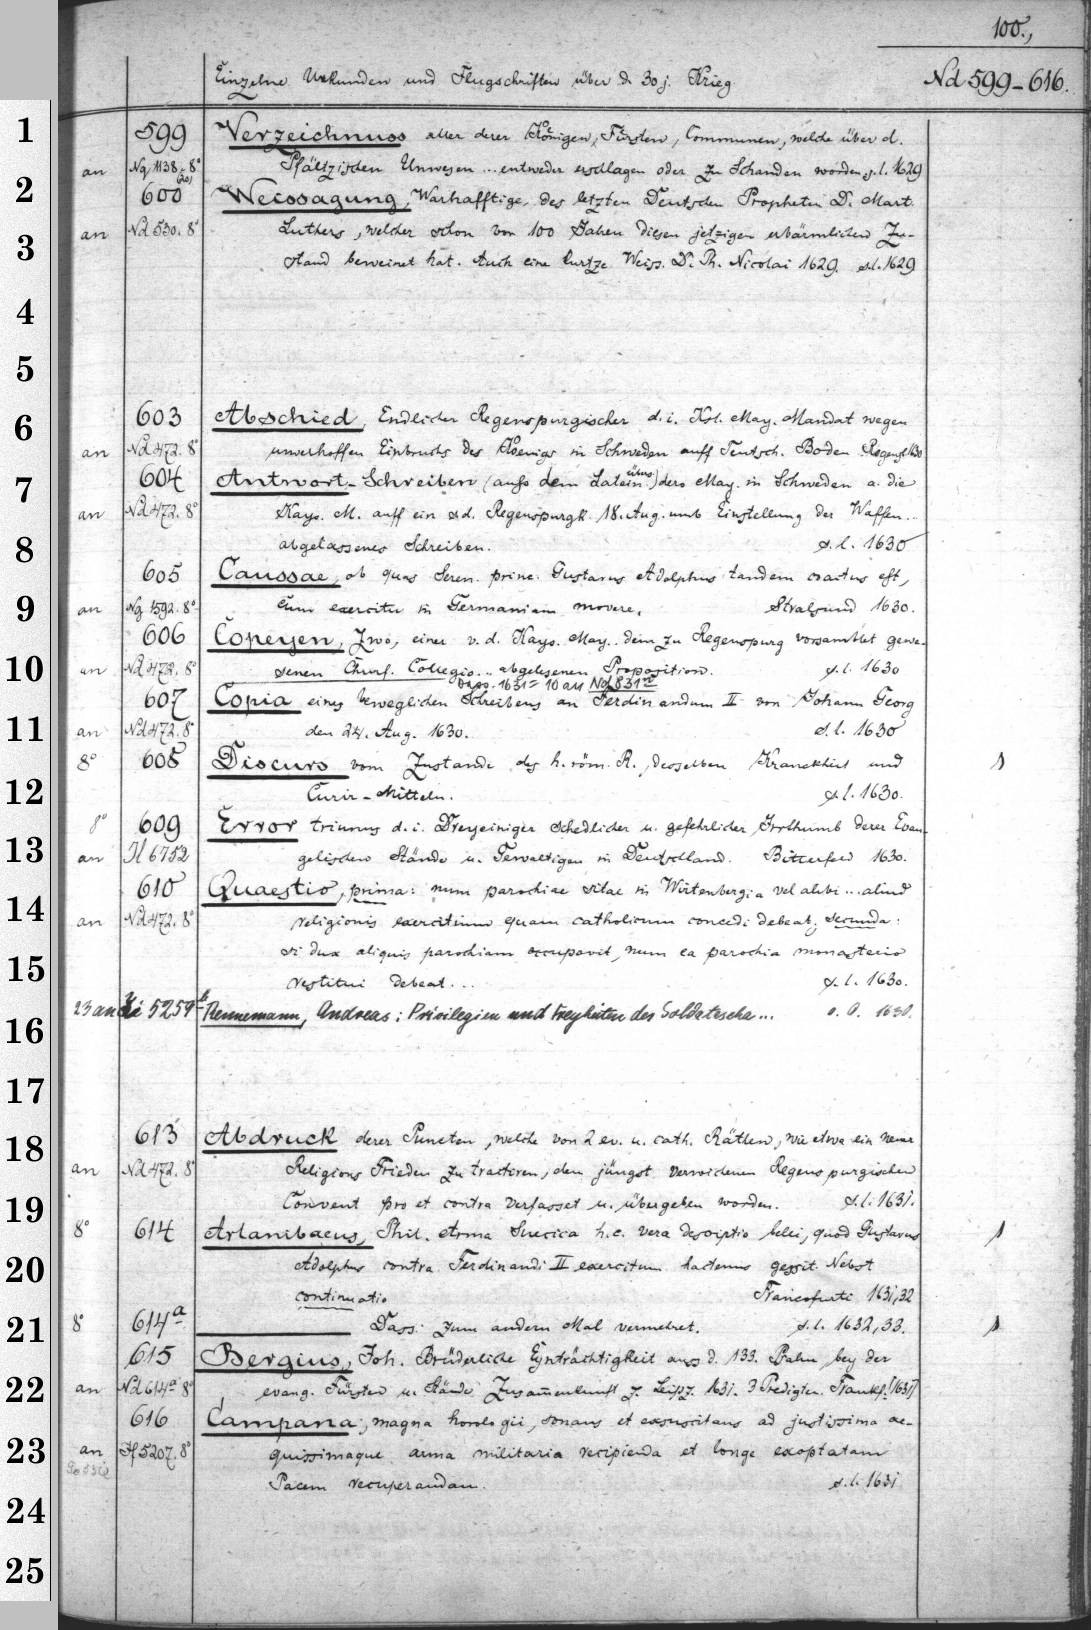 100.,
Einzelne Urkunden und Flugschriften über d. 30 j. Krieg Nd 599-616.
1
599 Verzeichnuss aller derer Königen, Fürsten, Communen, welche über d.
an Ng 1138. 8° (20) Pfältzischen Unwesen ... entweder erschlagen oder zu Schanden worden. s.l. 1629
2
600 Weissagung, Warhafftige, des letzten Deutschen Propheten D. Mart.
an Nd 530. 8° Luthers, welcher schon vor 100 Jahren diesen jetzigen erbärmlichen Zu-
3
stand beweinet hat. Auch eine kurtze Weiss. D. Ph. Nicolai 1629. s.l. 1629
4
5
6
603 Abschied, Endlicher Regenspurgischer d.i. Ksl. May. Mandat wegen
an Nd 472. 8° unverhofften Einbruchs des Koenigs in Schweden auff Teutsch. Boden Regensb. 1630
7
604 Antwort-Schreiben (auss dem Latein. übers.) dero May. in Schweden a. die
an Nd 472. 8° Kays. M. auff ein d.d. Regenspurgk 18. Aug. umb Einstellung der Waffen..
8
abgelassenes Schreiben. s.l. 1630
605 Caussae, ob quas Seren. princ. Gustavus Adolphus tandem coactus est,
9
an Ng 1592. 8° cum exercitu in Germaniam movere. Stralsund 1630.
606 Copeyen, Zwo, einer v. d. Kays. May. dem zu Regenspurg versamblet gewe-
10
an Nd 472. 8° senen Churf. Collegio .. abgelesenen Proposition. s.l. 1630
Dass. 1631 = 10 an Nd 831
607 Copia eines beweglichen Schreibens an Ferdinandum II von Johann Georg
11
an Nd 472. 8° den 24. Aug. 1630. s.l. 1630
8° 608 Discurs vom Zustande des h. röm. R., desselben Kranckheit und 1
12
Curir-Mitteln. s.l. 1630.
8° 609 Error triunus d.i. Dreyeiniger schedlicher u. gefehrlicher Irrthumb derer Evan-
13
an Il 6752 gelischen Stände u. Gewaltigen in Deutschland. Bitterfeld 1630.
610 Quaestio, prima: num parochiae sitae in Wirtenbergia vel alibi ... aliud
14
an Nd 472. 8° religionis exercitium quam catholicum concedi debeat; secunda:
si dux aliquis parochiam occupavit, num ea parochia monasterio
15
restitui debeat... s.l. 1630.
23 an 5259 Rennemann, Andreas: Privilegien und Freyheiten der Soldatescha ... o. O. 1630.
16
17
18
613 Abdruck derer Puncten, welche von 2 ev. u. cath. Räthen, wie etwa ein newer
an Nd 472. 8° Religions Frieden zu tractiren, dem jüngst verwichenen Regenspurgischen
19
Convent pro et contra verfasset u. übergeben worden. s.l. 1631.
8° 614 Arlanibaeus, Phil. Arma Suecica h.e. vera descriptio belli, quod Gustavus 1
20
Adolphus contra Ferdinandi II exercitum hactenus gessit. Nebst
continuatio Francofurti 1631,32
21
8° 614a Dass. zum andern Mal vermehret. s.l. 1632,33. 1
615 Bergius, Joh. Brüderliche Eynträchtigkeit auss d. 133. Psalm bey der
22
an Nd 614a 8° evang. Fürsten u. Stände Zusammenkunft z. Leipz. 1631. 3 Predigten. Frankf. [1631]
616 Campana, magna horologii, sonans et exsuscitans ad justissima ae-
23
an Hf 5207. 8° quissimaque arma militaria recipienda et longe exoptatam
Pacem recuperandam. s.l. 1631
24
25